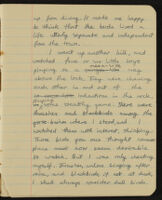 up from diving. It made me happy
to think that the birds lived a
life utterly separate and independent
from the town.
I went up another hill, and
watched five or six little boys
playing on a
above the lock. They were chasing
each other in and out of the
indentations in the rock,
playing some healthy game. There were
thrushes and blackbirds among the
gorse bushes where I stood and I
watched them with interest, thinking
those birds you have thought common
place must now seem desirable
to watch. But I was only cheating
myself. Thrushes, unless singing after
rain, and blackbirds if not at dusk,
I shall always consider dull birds.